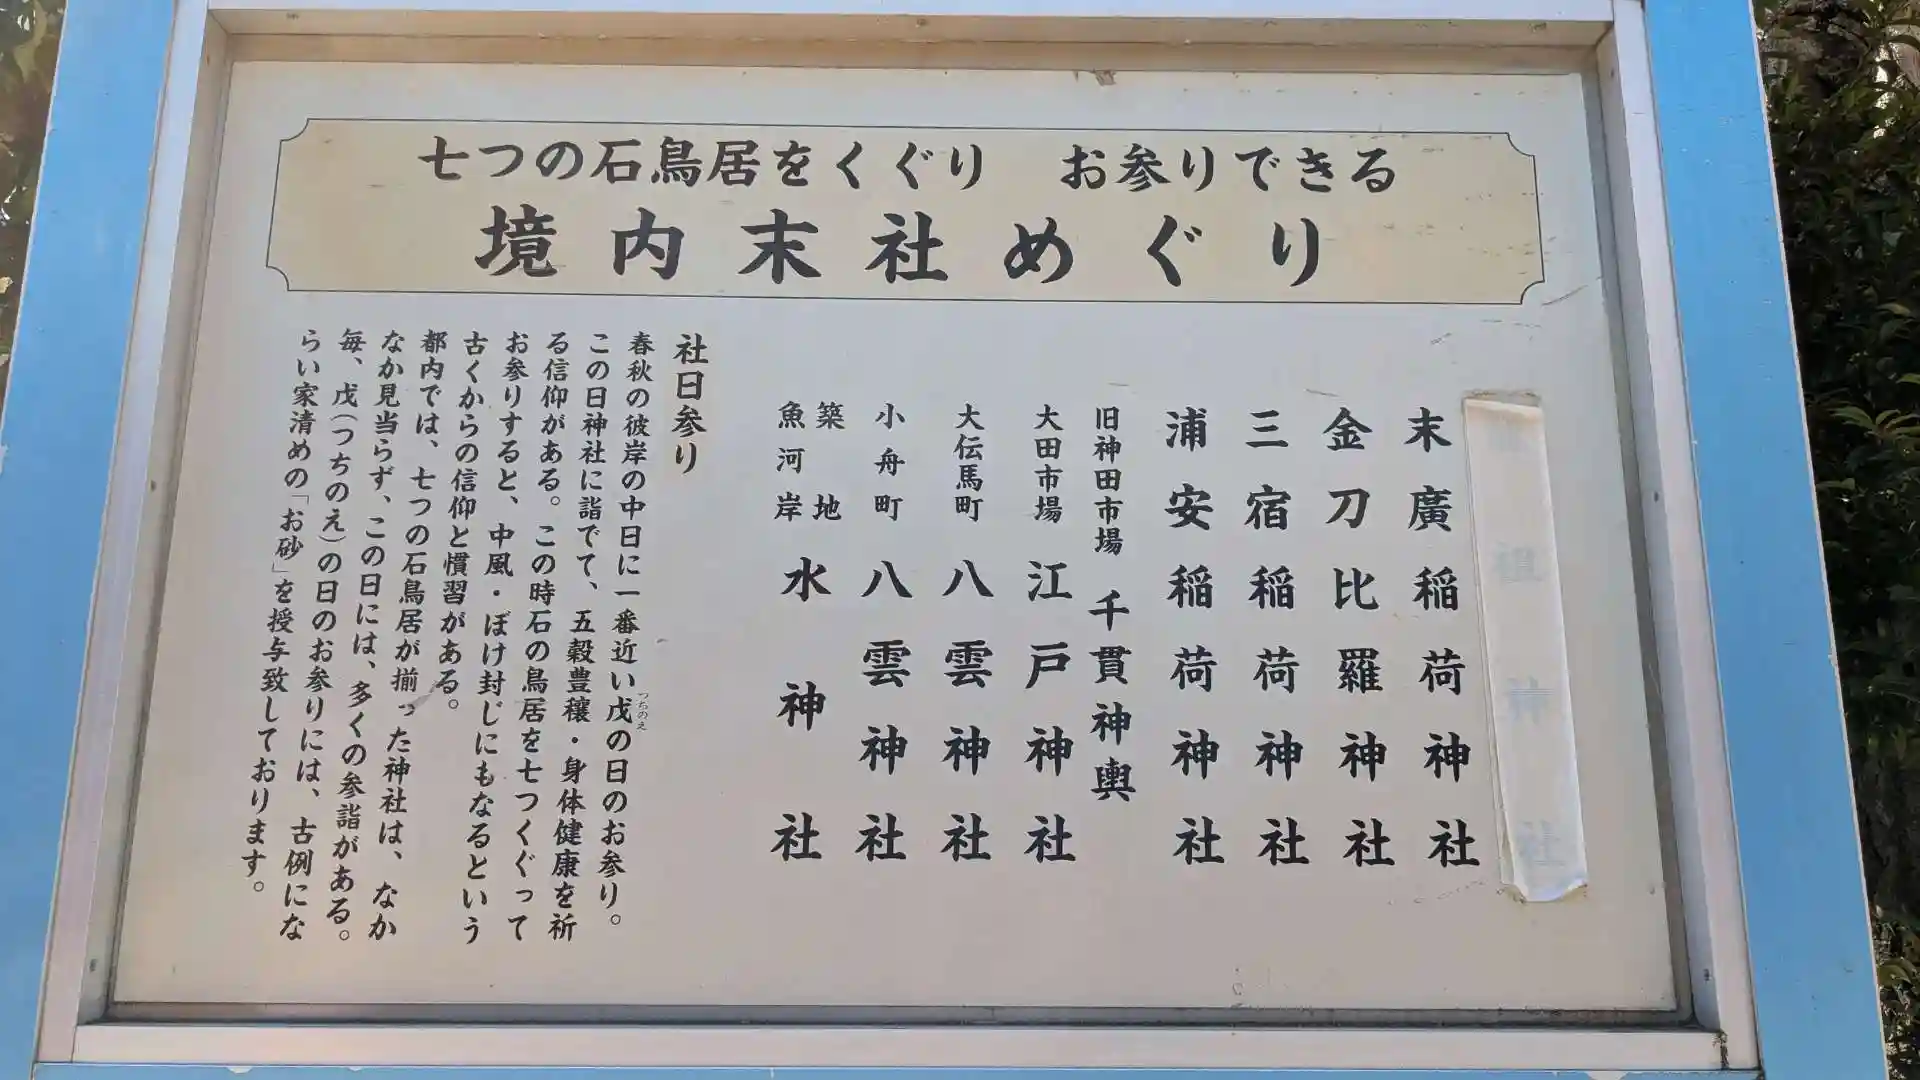 七つの石鳥居をくぐり お参りできる
境内末社めぐり
祖神社
末廣稲荷神社
金刀比羅神社
三宿稲荷神社
浦安稲荷神社
旧神田市場 千貫神輿
大田市場 江戸神社
大伝馬町 八雲神社
小舟町 八雲神社
築地
魚河岸 水神社
社日参り
春秋の彼岸の中日に一番近い戊の日のお参り。
つちのえ
この日神社に詣でて、五穀豊穰・身体健康を祈
る信仰がある。この時石の鳥居を七つくぐって
お参りすると、中風・ぼけ封じにもなるという
古くからの信仰と慣習がある。
都内では、七つの石鳥居が揃った神社は、なか
なか見当らず、この日には、多くの参詣がある。
毎、戊(つちのえ)の日のお参りには、古例にな
らい家清めの「お砂」を授与致しております。